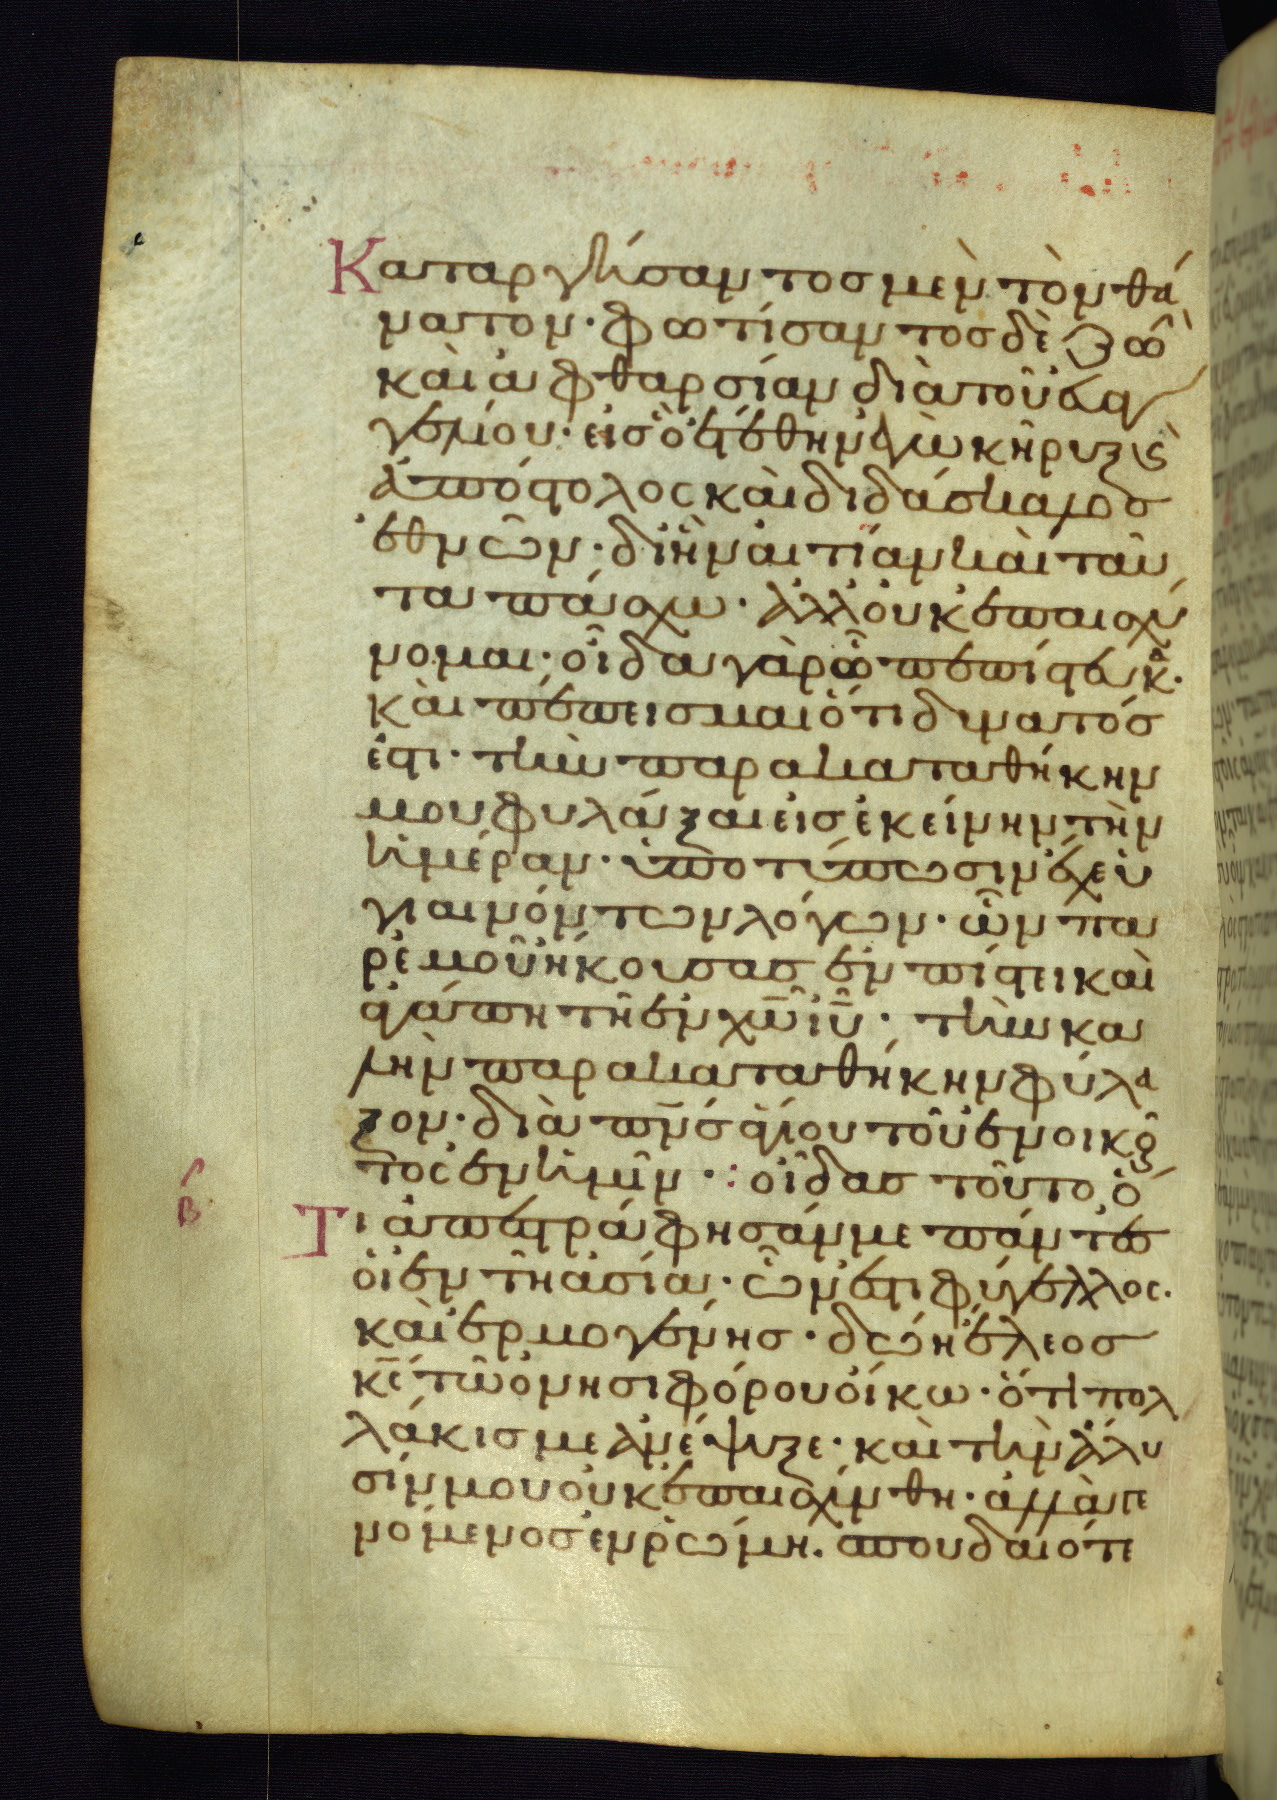 Καταργήσαντος μὲν τὸν θά
νατον· φωτίσαντος δὲ ζωὴ
καὶ ἀφθαρσίαν διὰ τοῦ εὐα
γγελίου· εἰς ὃ ἐτέθην ἐγὼ κῆρυξ κ̀
ἀπόστολος καὶ διδάσκαλος
ἐθνῶν· δι ἣν αἰτίαν καὶ ταῦ
τα πάσχω· ἀλλ οὐκ ἐπαισχύ
νομαι· οἶδα γὰρ ὧ πεπίστευκα·
καὶ πέπεισμαι ὅτι δυνατός
ἐστι· τὴν παρακαταθήκην
μου φυλάξαι εἰς ἐκείνην τὴν
ἡμέραν· ὑποτύπωσιν ἔχε ὑ
γιαινόντων λόγων· ὧν πα
ρ ἐμοῦ ἤκουσας ἐν πίστει καὶ
ἀγάπη τῆ ἐν χω ιυ· τὴν κα
λὴν παρακαταθήκην φύλα
ξον· διὰ πνς ἁγίου τοῦ ἐνοικοῦ
τος ἐν ἡμῖν·: οἶδας τοῦτο ὅ
β
Τι ἀπεστράφησάν με πάντες
οἱ ἐν τῆ ἀσία· ὧν ἐστι φύγελλος·
καὶ ἑρμογένης· δώη ἔλεος
κς τῶ ὀνησιφόρου οἴκω· ὅτι πολ
λάκις με ἀνέψυξε· καὶ τὴν ἅλυ
σίν μου οὐκ ἐπαισχύνθη· ἀλλὰ γε
νόμενος ἐν ῥώμη. σπουδαιότε